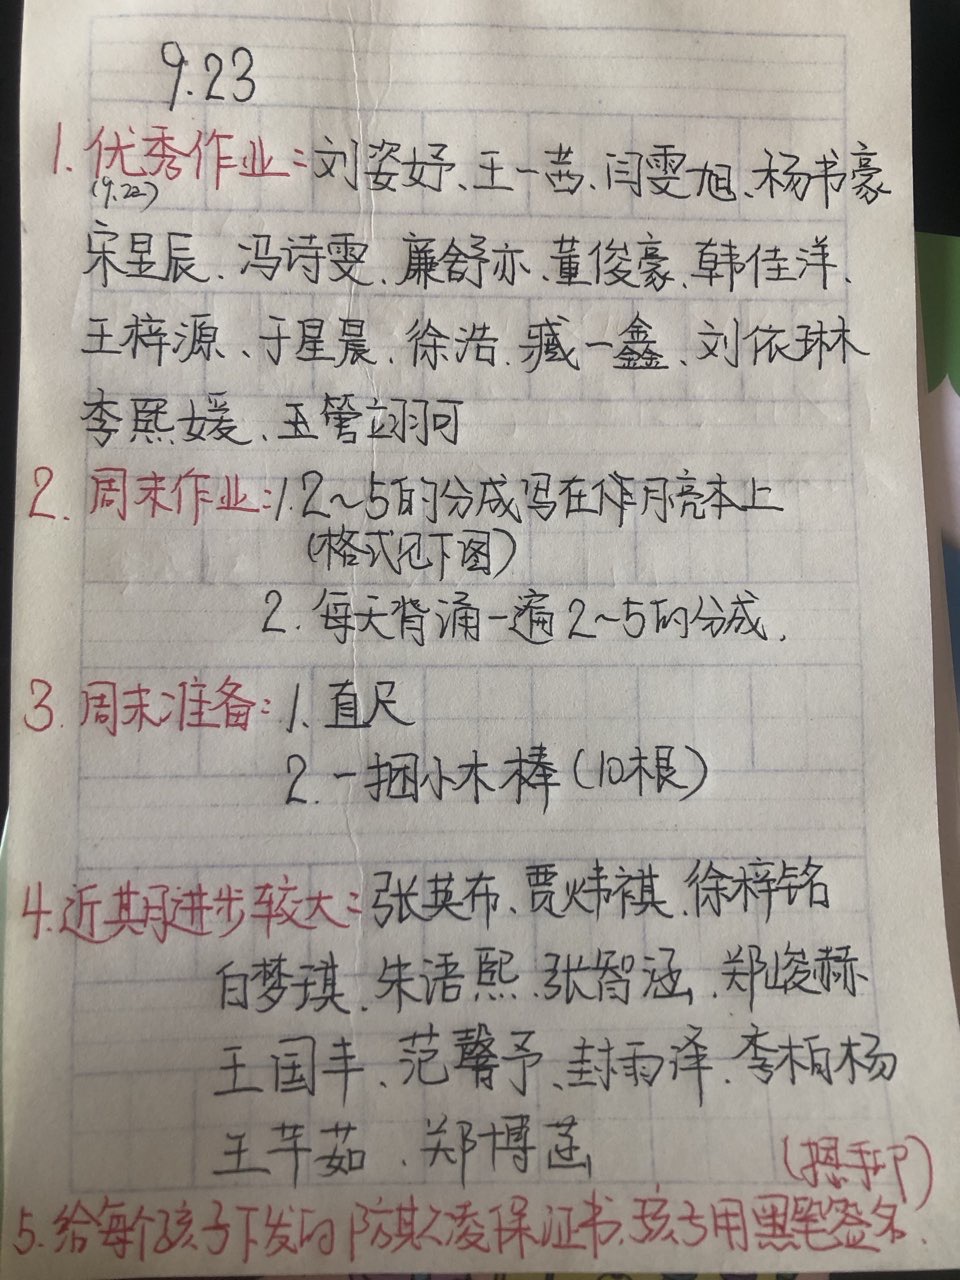 9.23
1.优秀作业:刘姿妤、王一茜、闫雯旭、杨书豪
(9.22)
宋昱辰、冯诗雯、廉舒亦、董俊豪、韩佳洋、
王梓源、于星晨、徐浩、臧一鑫、刘依琳
李熙媛、王管翊可
2.周末作业:1.2~5的分成写在作月亮本上
(格式见下图)
2.每天背诵一遍2~5的分成.
3.周末准备:1.直尺
2.一捆小木棒(10根)
4.近期进步较大:张英布、贾炜祺、徐梓铭
白梦琪、朱语熙、张智涵、郑峻赫
王国丰、范馨予、封雨泽、李柏杨
王芊茹、郑博
(摁手印)
5.给每个孩子下发的防欺凌保证书,孩子用黑笔签名.